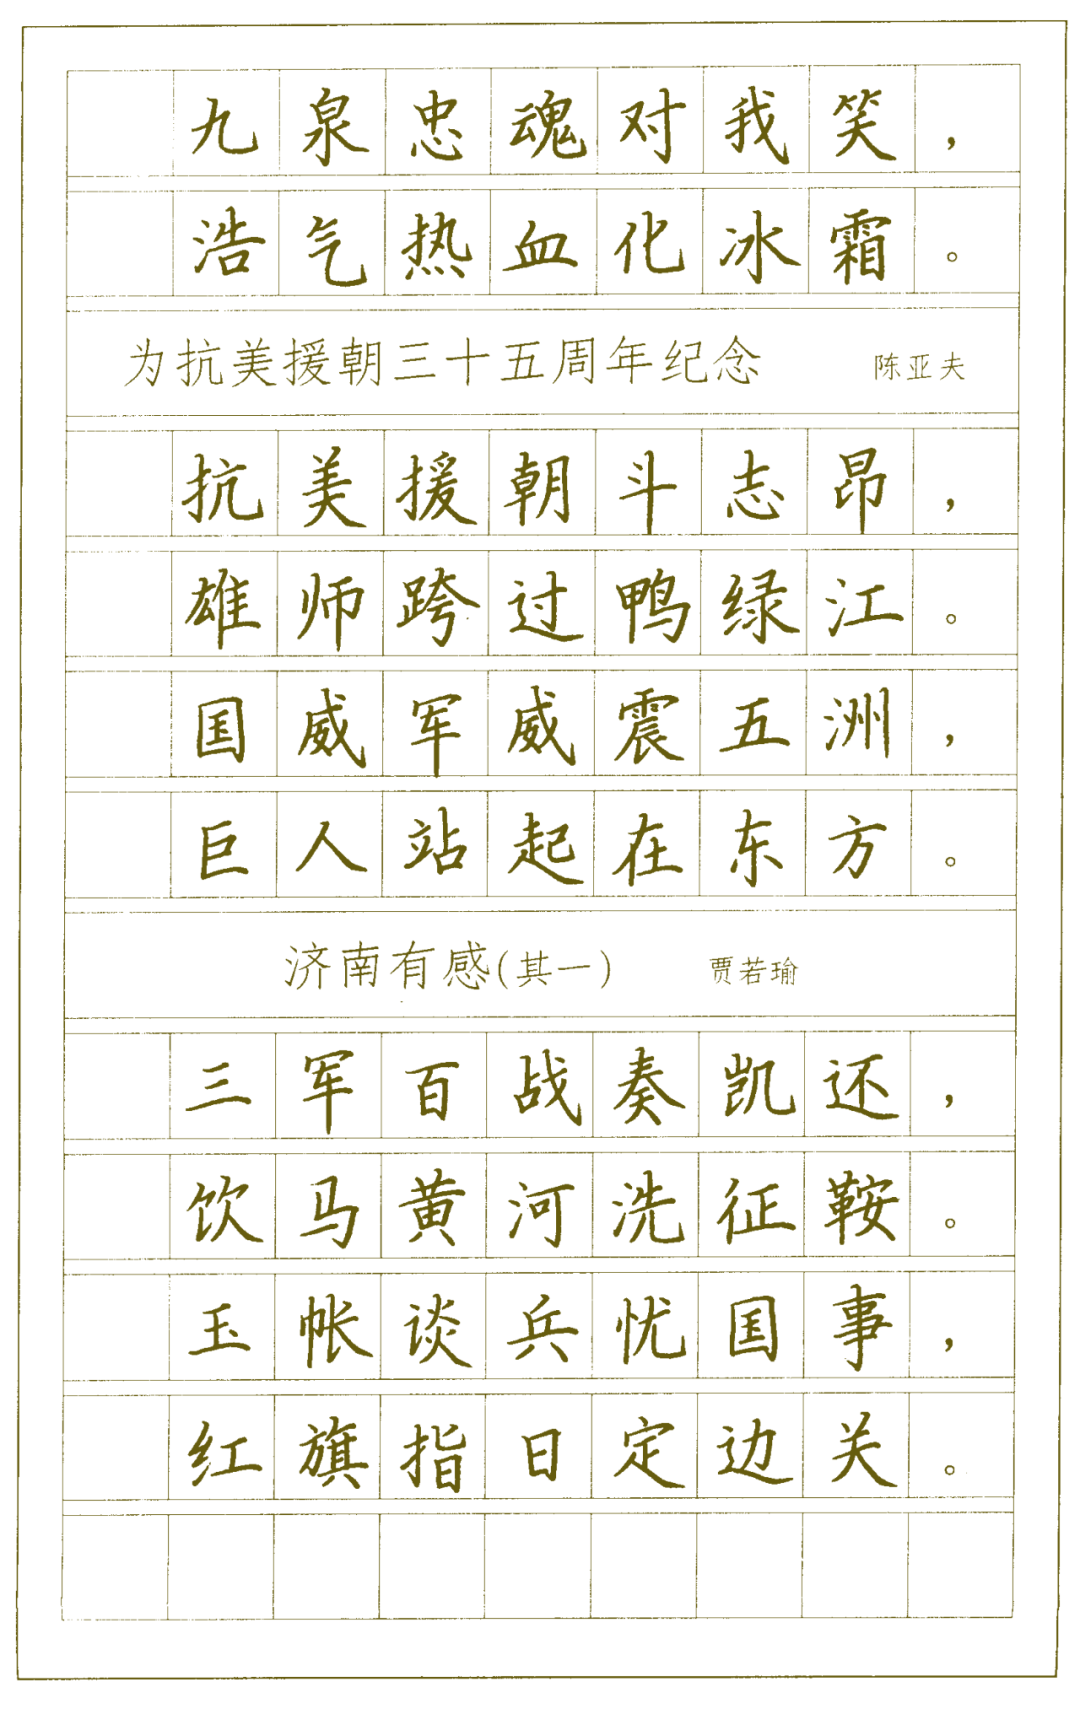 九泉忠魂对我笑，
浩气热血化冰霜。
为抗美援朝三十五周年纪念 陈亚夫
抗美援朝斗志昂，
雄师跨过鸭绿江。
国威军威震五洲，
巨人站起在东方。
济南有感(其一) 贾若瑜
三军百战奏凯还，
饮马黄河洗征鞍。
玉帐谈兵忧国事，
红旗指日定边关。